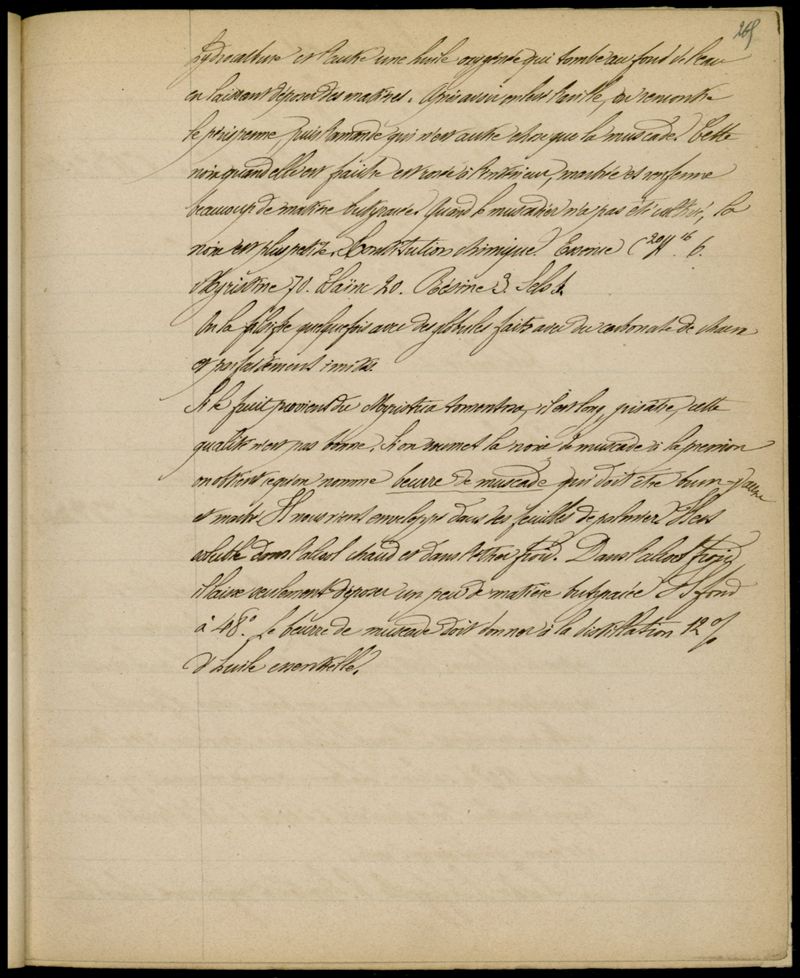 265
hydrocarbure et l'autre une huile oxigénée qui tombe au fond de l'eau
en laissant déposer des matières. Après avoir enlevé l'arille, on rencontre
le périsperme, puis l'amande qui n'est autre chose que la muscade. Cette
noix quand elle est fraîche est rosée à l'intérieur, marbrée et renferme
beaucoup de matière butyracée. Quand le muscadier n'a pas été cultivé, la
noix est plus petite. Constitution chimique. Essence C20H16. 6.
Myristine 70. Elaïne 20. Résine 3. Sels 1.
On la falsifie quelquefois avec des globules faits avec du carbonate de chaux
et parfaitement imités.
Si le fruit provient du Myristica tomentosa, il est long, grisâtre, cette
qualité n'est pas bonne. Si on soumet la noix de muscade à la pression
on obtient ce qu'on nomme beurre de muscade qui doit être brun-jaune
et marbré. Il nous vient enveloppé dans des feuilles de palmier. Il est
soluble dans l'alcool chaud et dans l'éther froid. Dans l'alcool froid
il laisse seulement déposer un peu de matière butyracée. Il fond
à 48°. Le beurre de muscade doit donner à la distillation 12 %
d'huile essentielle.